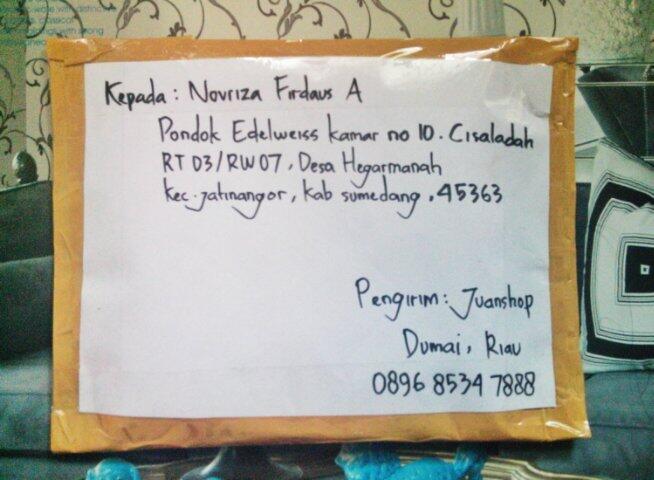 Kepada : Novriza Firdaus A
Pondok Edelweiss kamar no 10 . Cisaladah
RT 03/RW 07 , Desa Hegarmanah
kec.jatinangor , kab sumedang , 45363
Pengirim : Juanshop
Dumai , Riau
0896 8534 7888